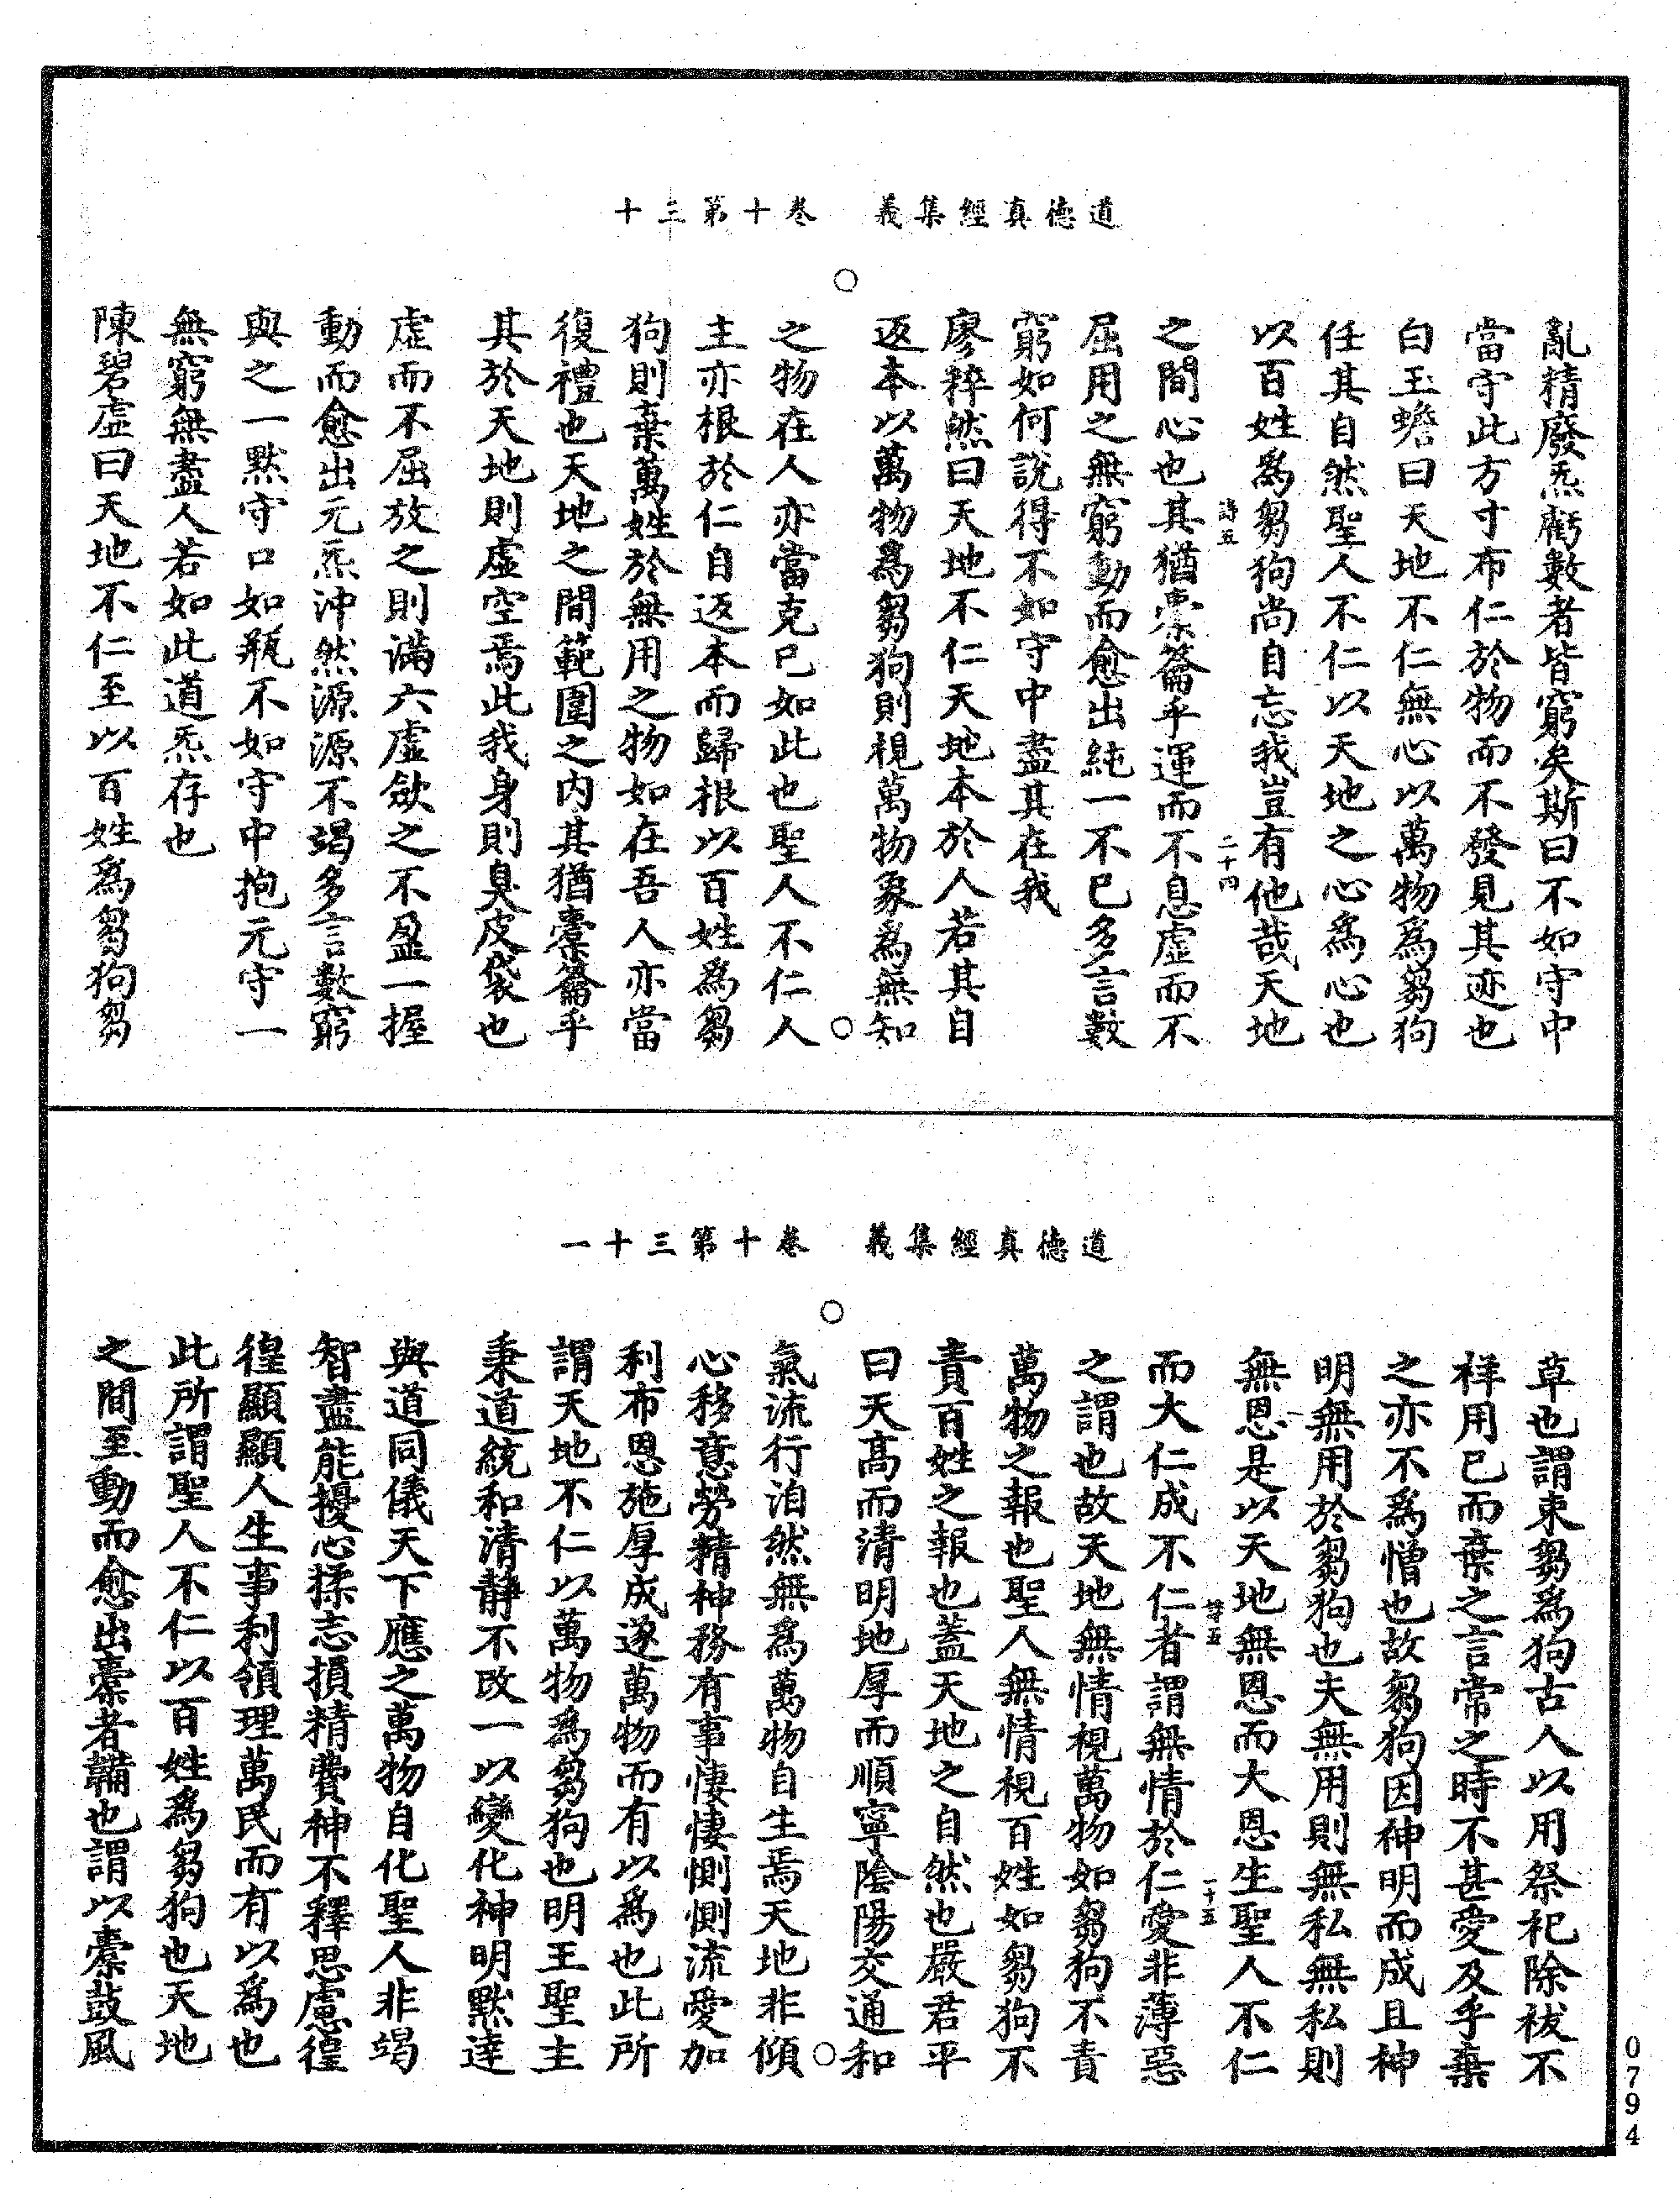 道德真經集義　卷十第三十
亂精廢炁虧數者皆窮矣斯曰不如守中
當守此方寸布仁於物而不發見其迹也
白玉蟾曰天地不仁無心以萬物為芻狗
任其自然聖人不仁以天地之心為心也
以百姓為芻狗尚自忘我豈有他哉天地
詩五　二十四
之間心也其猶橐籥乎運而不息虛而不
屈用之無窮動而愈出純一不已多言數
窮如何說得不如守中盡其在我
廖粹然曰天地不仁天地本於人若其自
返本以萬物為芻狗則視萬物象為無知
之物在人亦當克己如此也聖人不仁人
主亦根於仁自返本而歸根以百姓為芻
狗則棄萬姓於無用之物如在吾人亦當
復禮也天地之間範圍之內其猶橐籥乎
其於天地則虛空焉此我身則臭皮袋也
虛而不屈放之則滿六虛斂之不盈一握
動而愈出元炁沖然源源不竭多言數窮
與之一默守口如瓶不如守中抱元守一
無窮無盡人若如此道炁存也
陳碧虛曰天地不仁至以百姓為芻狗芻
道德真經集義　卷十第三十一
草也謂束芻為狗古人以用祭祀除祓不
祥用已而棄之言常之時不甚愛及乎棄
之亦不為憎也故芻狗因神明而成且神
明無用於芻狗也夫無用則無私無私則
無恩是以天地無恩而大恩生聖人不仁
詩五　二十五
而大仁成不仁者謂無情於仁愛非薄惡
之謂也故天地無情視萬物如芻狗不責
萬物之報也聖人無情視百姓如芻狗不
責百姓之報也蓋天地之自然也嚴君平
曰天高而清明地厚而順寧陰陽交通和
氣流行泊然無為萬物自生焉天地非傾
心移意勞精神務有事悽悽惻惻流愛加
利布恩施厚成遂萬物而有以為也此所
謂天地不仁以萬物為芻狗也明王聖主
秉道統和清靜不改一以變化神明默達
與道同儀天下應之萬物自化聖人非竭
智盡能擾心揉志損精費神不釋思慮徨
徨顯顯人生事利領理萬民而有以為也
此所謂聖人不仁以百姓為芻狗也天地
之間至動而愈出橐者鞴也謂以橐鼓風
0794